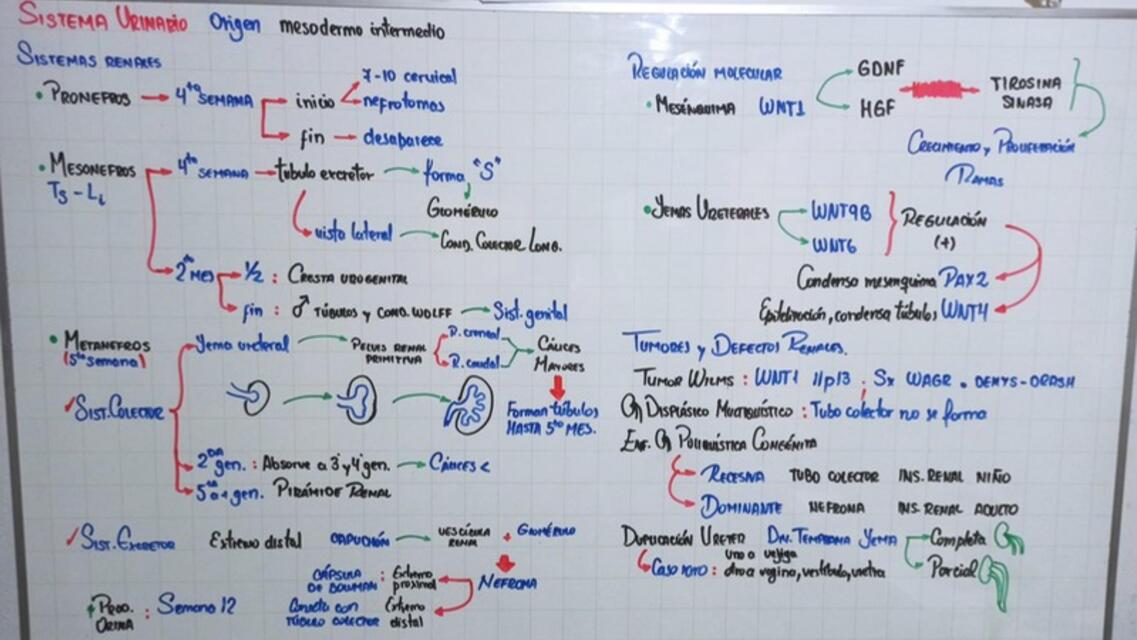 SISTEMA URINARIO Origen mesodermo intermedio
SISTEMAS RENALES
• PRONEFROS → 4ta SEMANA → inicio
7-10 cervical
nefrotomas
fin → desaparece
• MESONEFROS
4ta SEMANA → tubulo excretor → forma "S"
GLOMÉRULO
vista lateral → COND. COLECTOR LONG.
2do MES → 1/2 : CRESTA UROGENITAL
fin : ♂ TÚBULOS Y COND. WOLFF → Sist. genital
• METANEFROS
(5ta semana)
Yema ureteral → PELVIS RENAL
PRIMITIVA
R. craneal
R. caudal
CÁLICES
MAYORES
✓SIST. COLECTOR
Forman túbulos
HASTA 5to MES.
2DA gen. : Absorve a 3 y 4 gen. → CÁLICES <
5ta gen. PIRÁMIDE RENAL
✓SIST. EXCRETOR Extremo distal CAPUCHÓN → VESÍCULA
RENAL + GLOMÉRULO
NEFRONA
CÁPSULA
DE BOWMAN : Extremo
proximal
Conecta con
TÚBULO COLECTOR Extremo
distal
PROD.
ORINA : Semana 12
REGULACIÓN MOLECULAR
• MESÉNQUIMA WNT1
GDNF
HGF
TIROSINA
SINASA
CRECIMIENTO y PROLIFERACIÓN
RAMAS
• YEMAS URETERALES
WNT9B
WNT6
REGULACIÓN
(+)
Condensa mesenquima PAX2
Epitelización, condensa túbulos WNT4
TUMORES y DEFECTOS RENALES.
TUMOR WILMS : WNT1 11p13 : Sx WAGR • DENYS-DRASH
DISPLÁSICO MULTIQUÍSTICO : Tubo colector no se forma
ENF. POLIQUÍSTICA CONGÉNITA
RECESIVA TUBO COLECTOR INS. RENAL NIÑO
DOMINANTE NEFRONA INS. RENAL ADULTO
DUPLICACIÓN URETER DIV. TEMPRANA YEMA
Completa
Parcial
CASO RARO : uno a vejiga
otro a vagina, vestíbulo, uretra